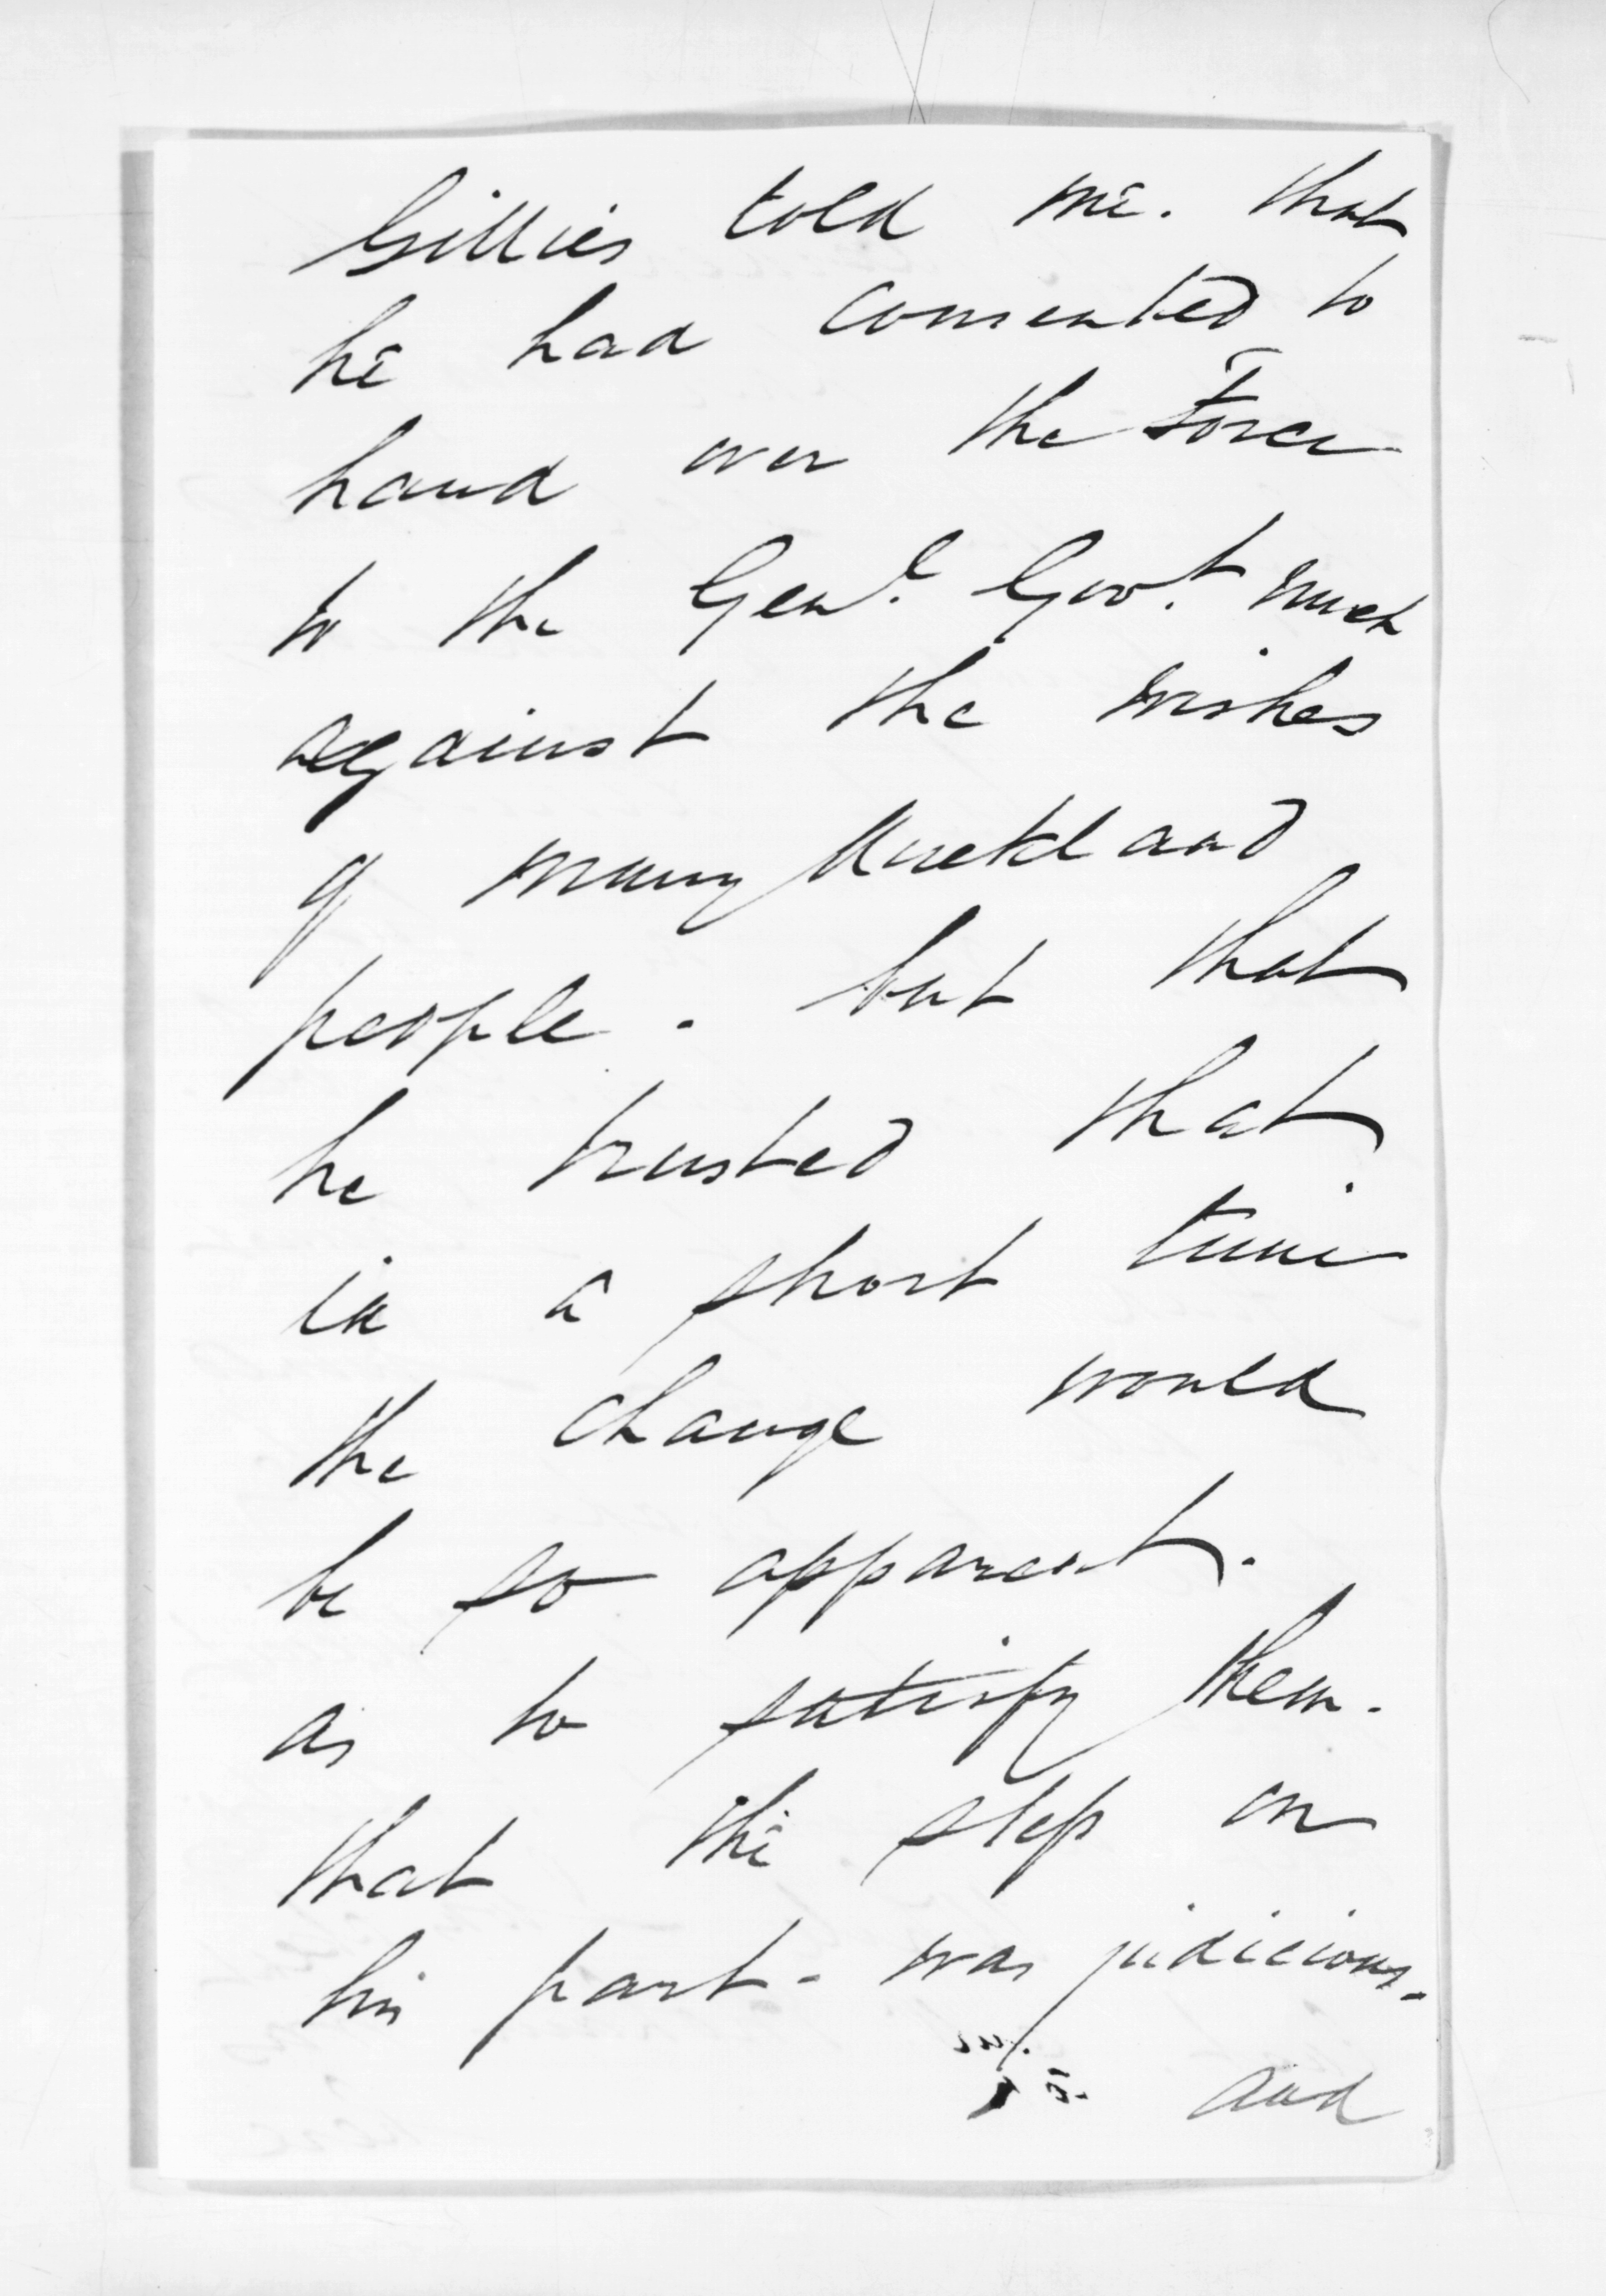 Gillies told me. that
he had consented to
hand over the Force
to the Genl. Govt. much
against the wishes
of many Auckland
people. but that
he trusted that
in a short time
the change would
be so apparent.
as to satisfy them.
that the step on
his part - was judicious.
and